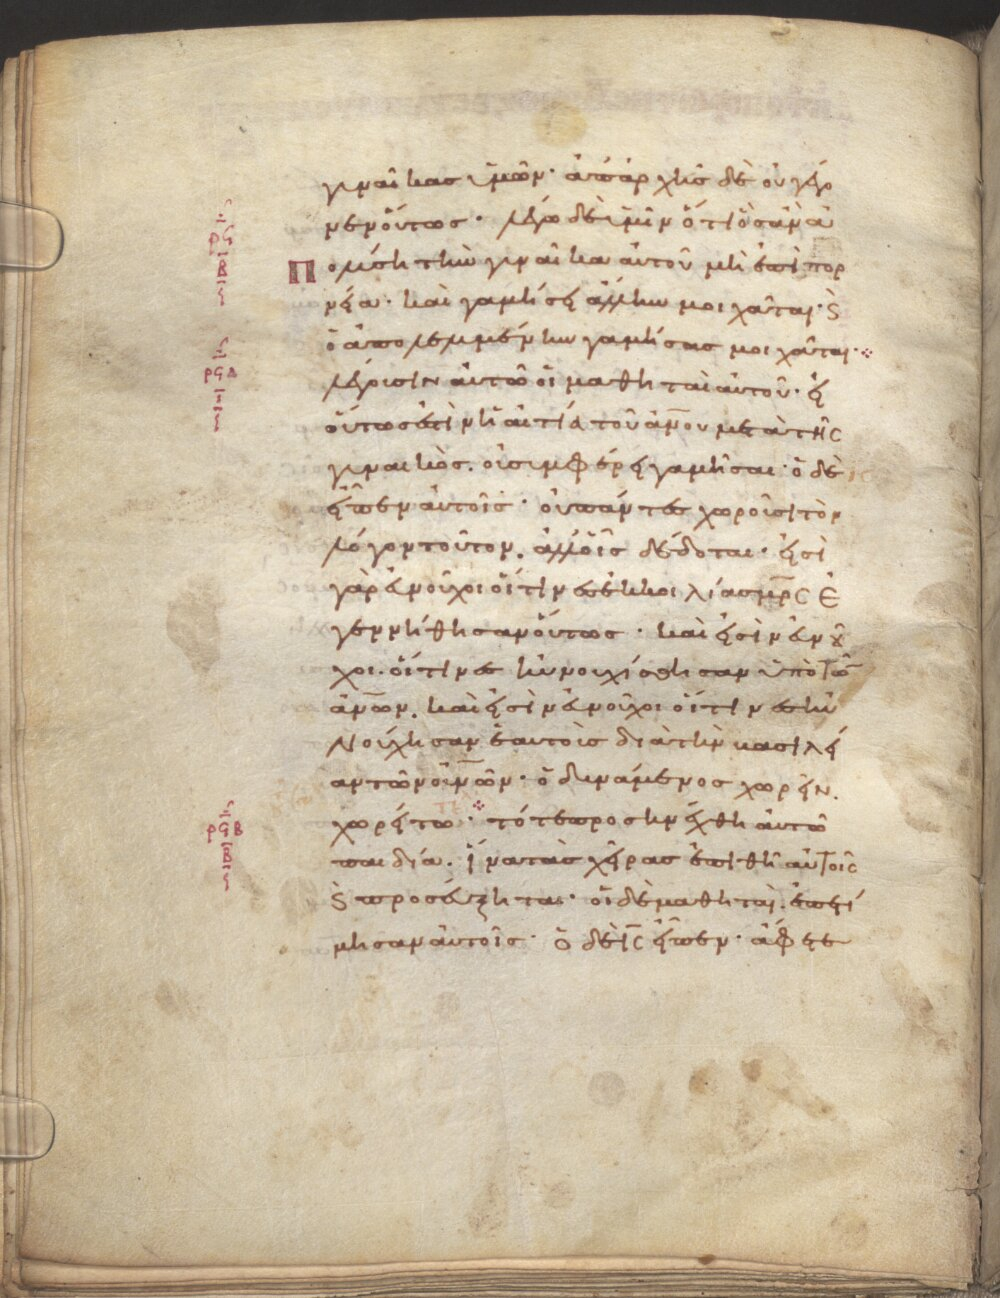 γυναῖκας ὑμῶν· ἀπάρχῆς δὲ οὐ γέγ
νεν οὕτως· λέγω δὲ ὑμῖν ὅτι ὃς ἀν ἀ
πολύσῃ τὴν γυναῖκα αὐτοῦ μὴ ἐπὶ πορ
νεία· καὶ γαμήσει ἄλλην μοιχᾶται· Ϗ
ὁ ἀπολελυμμένην γαμήσας μοιχᾶται·
λέγουσιν αὐτῶ οἱ μαθηταὶ αὐτοῦ· εἰ
οὕτως ἐστὶν ἡ αἰτία τοῦ ἀνου μετὰ τῆς
γυναικὸς. οὐ συμφέρει γαμῆσαι· ὁ δὲ
εἶπεν αὐτοῖς· οὐ πάντες χωροῦσι τὸν
λόγον τοῦτον. ἀλλ οἷς δέδοται· εἰσὶ
γὰρ εὐνοῦχοι οἵτινες ἐκ κοιλίας μρς ἐ
γεννήθησαν οὕτως· καὶ εἰσὶν εὐνοῦ
χοι. οἵτινες ηὐνουχίσθησαν ὑπὸ τῶ
ἀνων. καὶ εἰσὶν εὐνοῦχοι οἵτινες ηὐ
νούχησαν ἑαυτοὶς διὰ τὴν βασιλεί
αν τῶν οὐνῶν· ὁ δυνάμενος χωρεῖν.
χωρείτω· τότε προσηνέχθη αὐτῶ
παιδία. ἵνα τὰς χεῖρας ἐπιθῆ αὐτοῖς
Ϗ προσεύξηται· οἱ δὲ μαθηταὶ. ἐπετί
μησαν αὐτοῖς· ὁ δὲ ις εἶπεν· ἄφετε